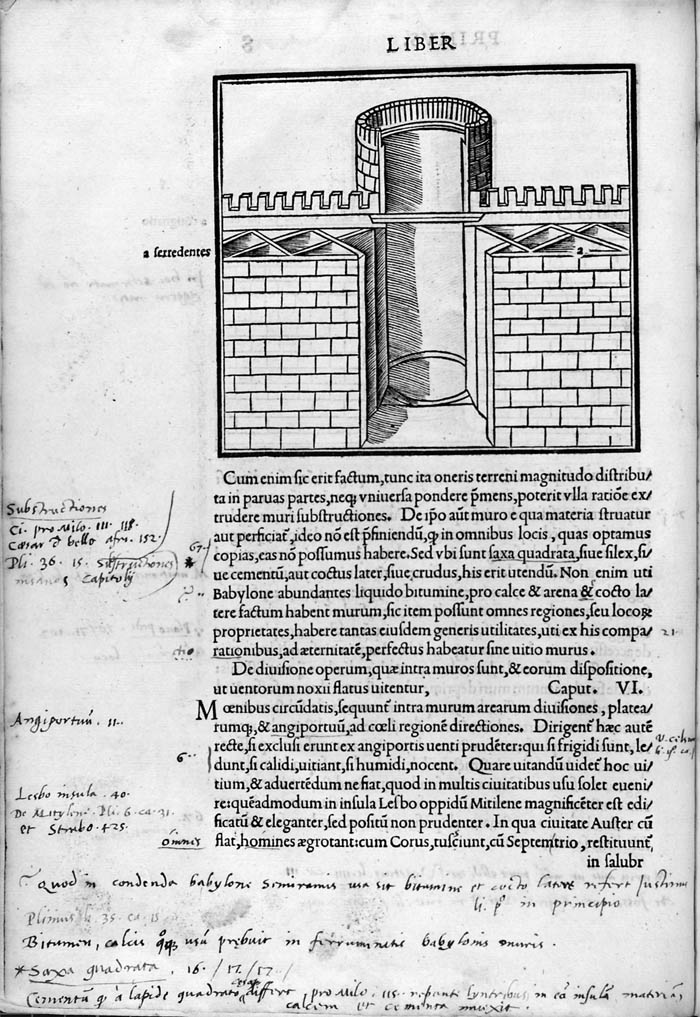 LIBER
a serredentes
a
Cum enim sic erit factum,tunc ita oneris terreni magnitudo distribu/
ta in paruas partes,neqʒ vniuersa pondere p̄mens,poterit vlla ratiōe ex/
trudere muri substructiones. De ip̄o aūt muro e qua materia struatur
aut perficiat᷑,ideo nō est p̄finiendū,ꝙ in omnibus locis, quas optamus
copias,eas nō possumus habere.Sed vbi sunt saxa quadrata,siue silex,si/
ue cementū,aut coctus later,siue,crudus,his erit utendū. Non enim uti
Babylone abundantes liquido bitumine,pro calce & arena & cocto la/
tere factum habent murum,sic item possunt omnes regiones,seu locoꝝ
proprietates,habere tantas eiusdem generis utilitates,uti ex his compa/
rationibus,ad æternitatē,perfectus habeatur sine uitio murus.
De diuisione operum,quæ intra muros sunt,& eorum dispositione,
ut uentorum noxii flatus uitentur, Caput. VI.
Mœnibus circūdatis,sequunt᷑ intra murum arearum diuisiones, platea/
rumqʒ,& angiportuū,ad cœli regionē directiones. Dirigent᷑ hæc autē
recte,si exclusi erunt ex angiportis uenti prudēter:qui si frigidi sunt,le/
dunt,si calidi,uitiant,si humidi,nocent. Quare uitandū uidet᷑ hoc ui/
tium,& aduertēdum ne fiat,quod in multis ciuitatibus usu solet eueni/
re:quēadmodum in insula Lesbo oppidū Mitilene magnificēter est edi/
ficatū & eleganter,sed positū non prudenter. In qua ciuitate Auster cū
flat,homines ægrotant:cum Corus,tussiunt,cū Septemtrio,restituunt᷑,
in salubr
Substructiones
Ci. pro Milo. 111. 118.
Cæsar d bello afri. 152.
Pli. 36. 15. Substructiones
insanas Capitolij
67
*
ctio
21
Angiportuū . 11..
6
Lesbo insula . 40.
De Mitylene. Pli. 6. ca. 31.
et Strabo. 425.
omnis
Quod in condenda babylone Semiramis usa sit bitumine et cocto latere refert Justinus
li. pº in principio
Plinius li. 35. ca. 15
Bitumen, calcis qqʒ usū prebuit in ferruminatis babylonis muris.
*Saxa quadrata . 16. / 17. / 17.
Cementū ꝙ a lapide quadrato differt, pro Milo. 115. in eā insulā materiam
calcem et cementa inuexit